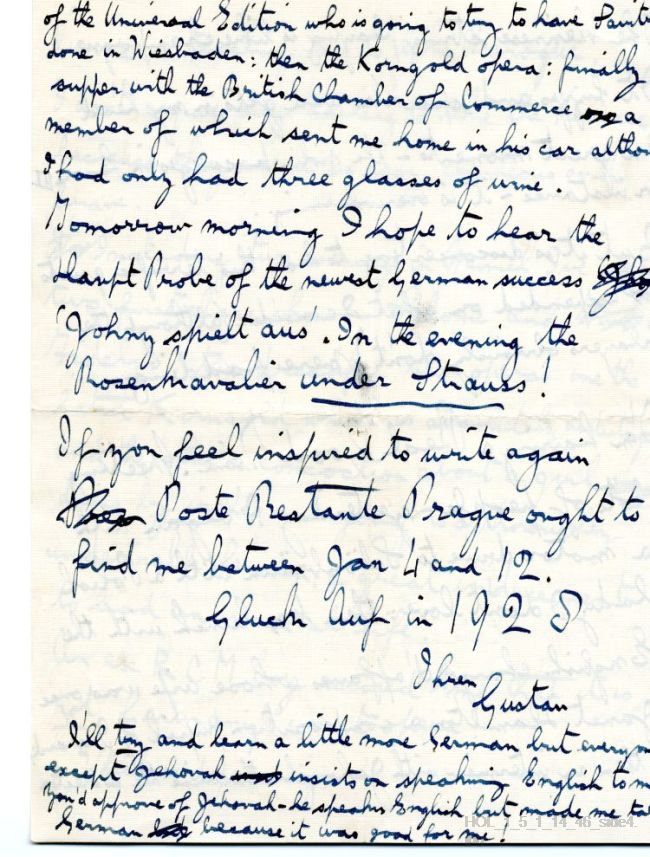 of the Universal Edition who is going to try to have Savitri
done in Wiesbaden: then the Korngold opera: finally
supper with the British Chamber of Commerce a
member of which sent me home in his car altho
I had only had three glasses of wine.
Tomorrow morning I hope to hear the
Haupt Probe of the newest German success
'Johny spielt aus'. In the evening the
Rosenkavalier under Strauss!
If you feel inspired to write again
Poste Restante Prague ought to
find me between Jan 4 and 12.
Gluck Auf in 1928
Ihren
Gustav
I'll try and learn a little more German but everyone
except Jehovah insists on speaking English to m
you'd approve of Jehovah - he speaks English but made me ta
German because it was good for me!
HOL_1_5_1_14_46_side4.